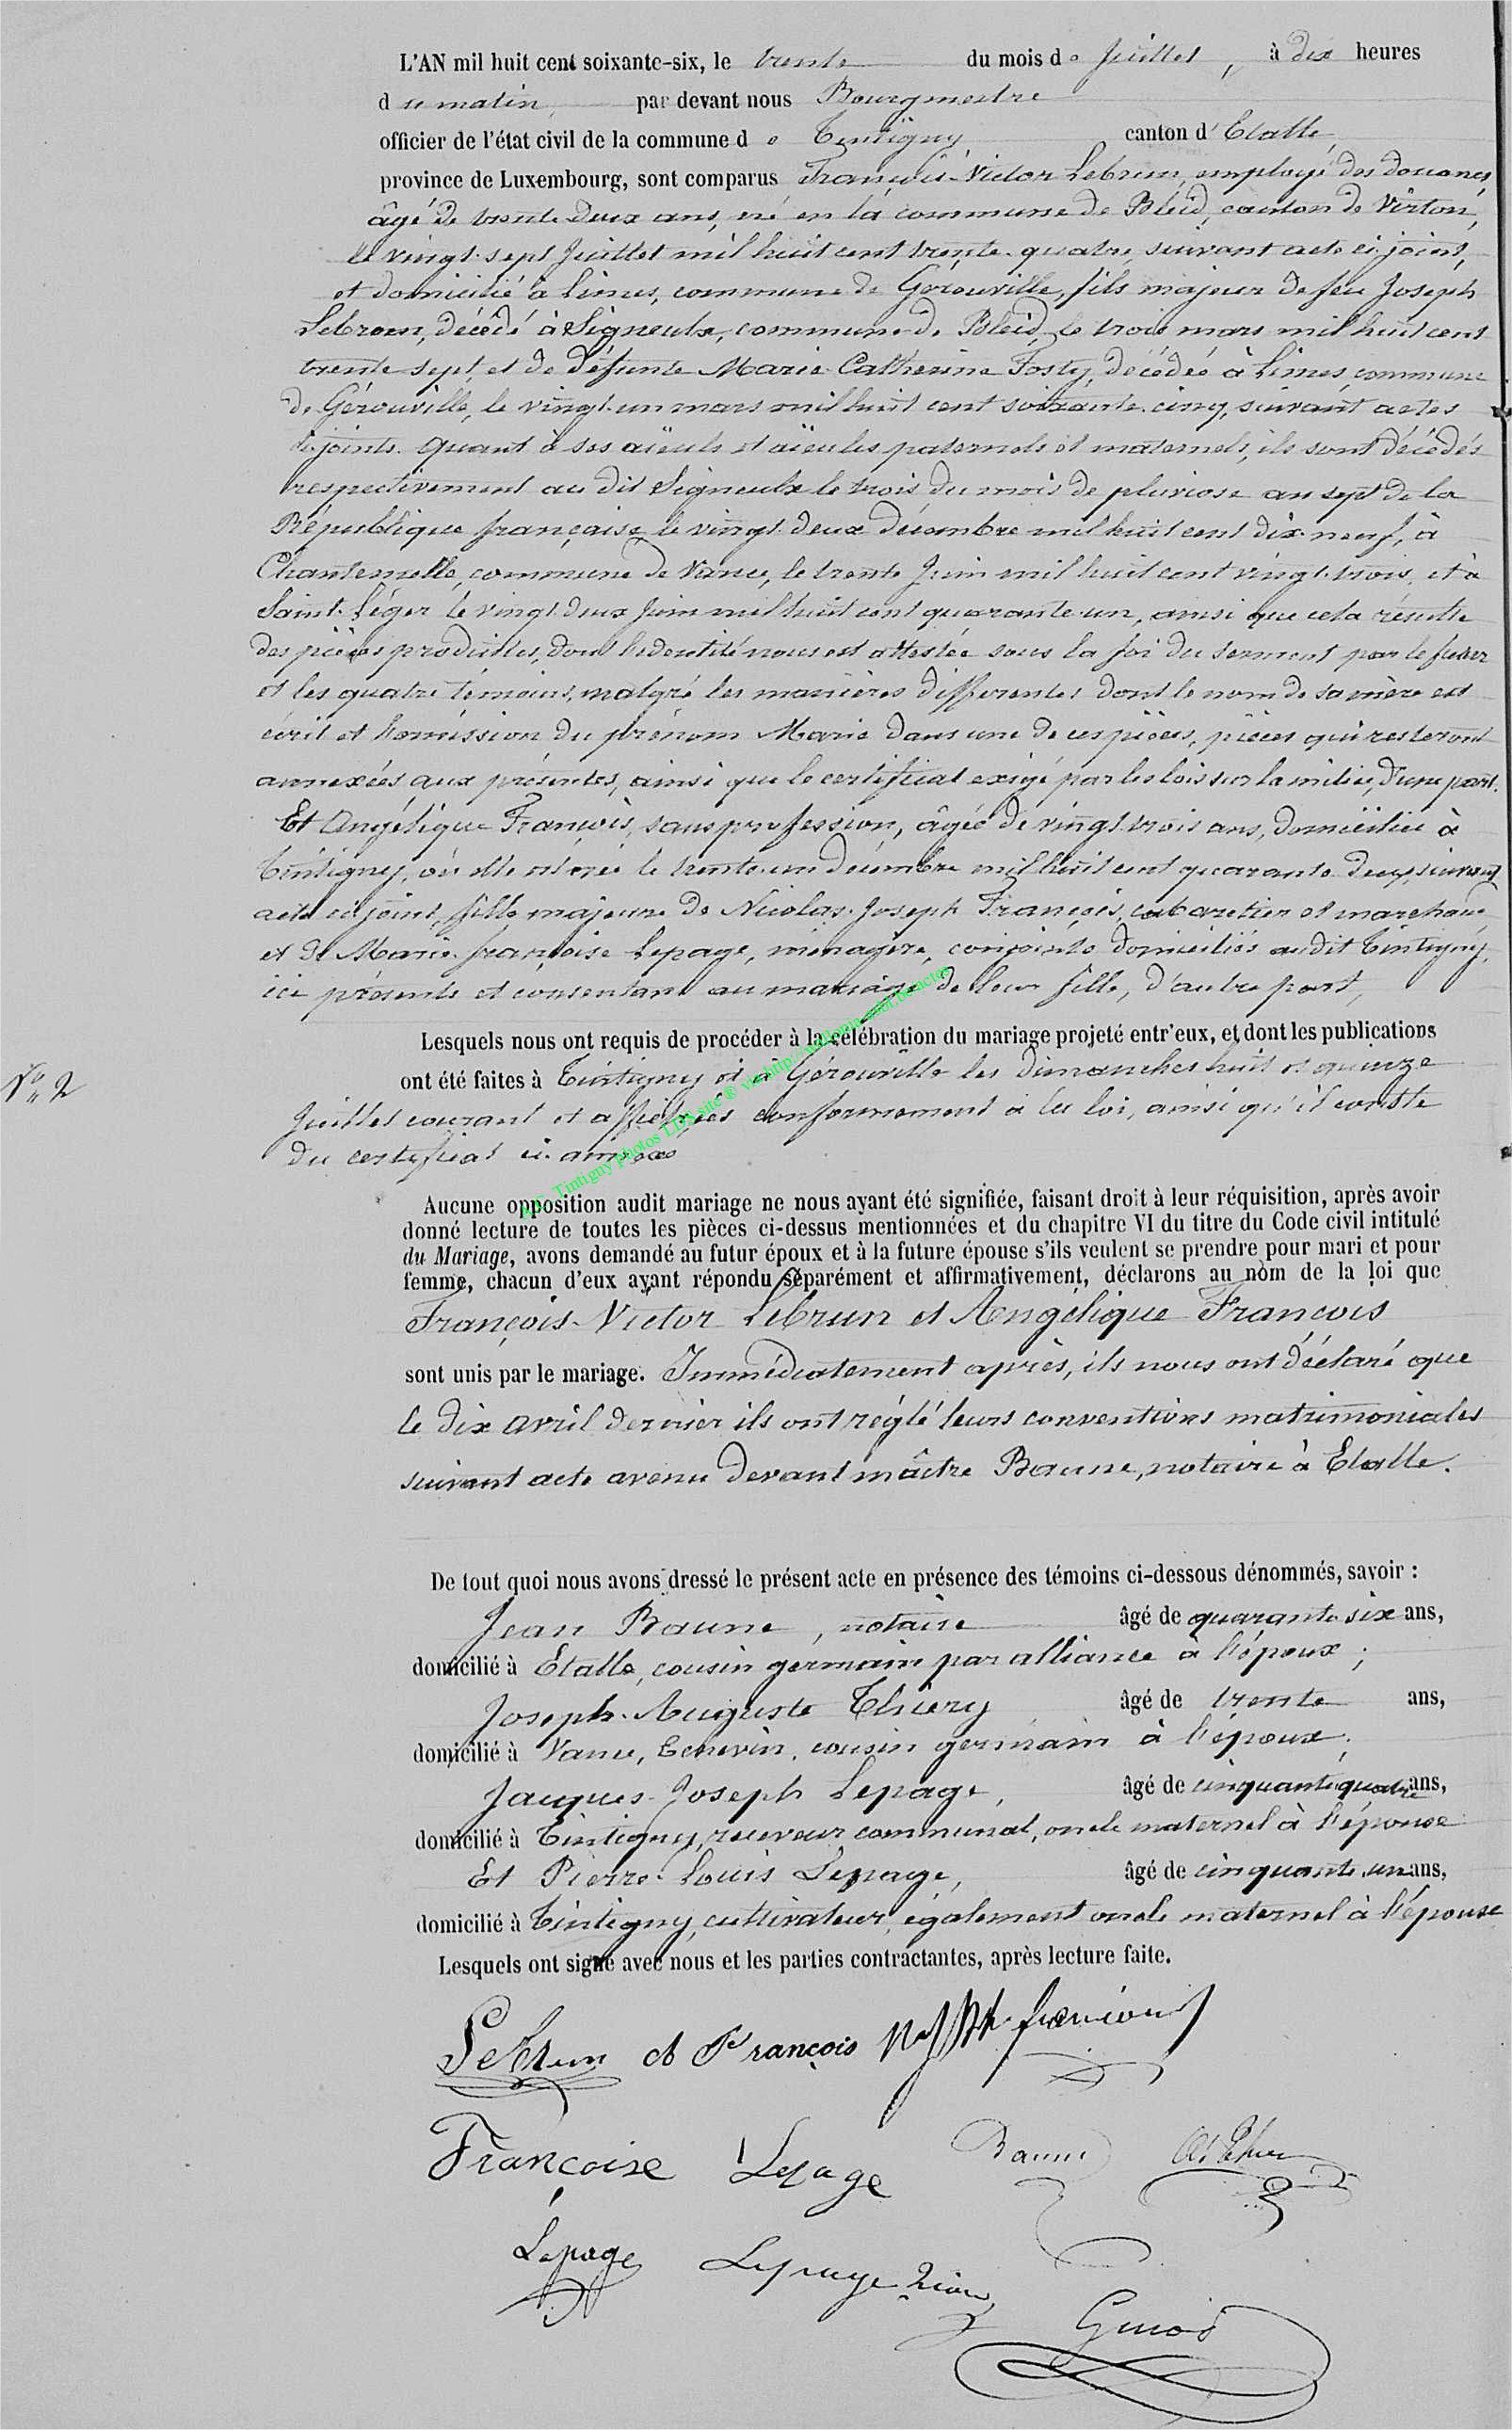 L'AN mil huit cent soixante-six, le trente du mois de Juillet, à dix heures
du matin, par devant nous Bourgmestre
officier de l'état civil de la commune de Tintigny canton d'Etalle,
province de Luxembourg, sont comparus François-Victor Lebrun, employé des douanes,
âgé de trente deux ans, né en la commune de Bleid, canton de Virton,
le vingt-sept Juillet mil huit cent trente-quatre, suivant acte ci-joint,
et domicilié à Limes, commune de Gérouville, fils majeur de feu Joseph
Lebrun, décédé à Signeulx, commune de Bleid, le trois mars mil huit cent
trente sept, et de défunte Marie-Catherine Fosty, décédée à Limes, commune
de Gérouville, le vingt-un mars mil huit cent soixante-cinq, suivant actes
ci-joints. Quant à ses aïeuls et aïeules paternels et maternels, ils sont décédés
respectivement au dit Signeulx le trois du mois de pluviose an sept de la
République française, le vingt-deux décembre mil huit cent dix-neuf, à
Chantemelle, commune de Vance, le trente Juin mil huit cent vingt-trois, et à
Saint-Léger le vingt-deux Juin mil huit cent quarante-un, ainsi que cela résulte
des pièces produites, dont l'identité nous est attestée sous la foi du serment par le futur
et les quatre témoins, malgré les manières différentes dont le nom de sa mère est
écrit et l'omission du prénom Marie dans une de ces pièces, pièces qui resteront
annexées aux présentes, ainsi que le certificat exigé par les lois sur la milice, d'une part.
Et Angélique François, sans profession, âgée de vingt-trois ans, domiciliée à
Tintigny, où elle est née le trente-un décembre mil huit cent quarante-deux, suivant
acte ci-joint, fille majeure de Nicolas-Joseph François, cabaretier et marchand
et de Marie-françoise Lepage, ménagère, conjoints domiciliés audit Tintigny,
ici présents et consentant au mariage de leur fille, d'autre part,
Lesquels nous ont requis de procéder à la célébration du mariage projeté entr'eux, et dont les publications
N° 2
ont été faites à Tintigny et à Gérouville les dimanches huit et quinze
Juillet courant et affichées conformément à la loi, ainsi qu'il conste
du certificat ci-annexé
A.C. Tintigny photos LDS site ®
Aucune opposition audit mariage ne nous ayant été signifiée, faisant droit à leur réquisition, après avoir
donné lecture de toutes les pièces ci-dessus mentionnées et du chapitre VI du titre du Code civil intitulé
du Mariage, avons demandé au futur époux et à la future épouse s'ils veulent se prendre pour mari et pour
femme, chacun d'eux ayant répondu séparément et affirmativement, déclarons au nom de la loi que
François-Victor Lebrun et Angélique François
sont unis par le mariage. Immédiatement après, ils nous ont déclaré que
le dix avril dernier ils ont réglé leurs conventions matrimoniales
suivant acte avenu devant maître Baune, notaire à Etalle.
De tout quoi nous avons dressé le présent acte en présence des témoins ci-dessous dénommés, savoir :
Jean Baune, notaire âgé de quarante-six ans,
domicilié à Etalle, cousin germain par alliance à l'époux ;
Joseph-Auguste Thiéry âgé de trente ans,
domicilié à Vance, Echevin, cousin germain à l'époux,
Jacques-Joseph Lepage, âgé de cinquante quatre ans,
domicilié à Tintigny, receveur communal, oncle maternel à l'épouse
Et Pierre-Louis Lepage, âgé de cinquante-un ans,
domicilié à Tintigny, cultivateur, également oncle maternel à l'épouse
Lesquels ont signé avec nous et les parties contractantes, après lecture faite.
Lebrun A François françois
Francoise Lepage Baune
Lepage Lepage